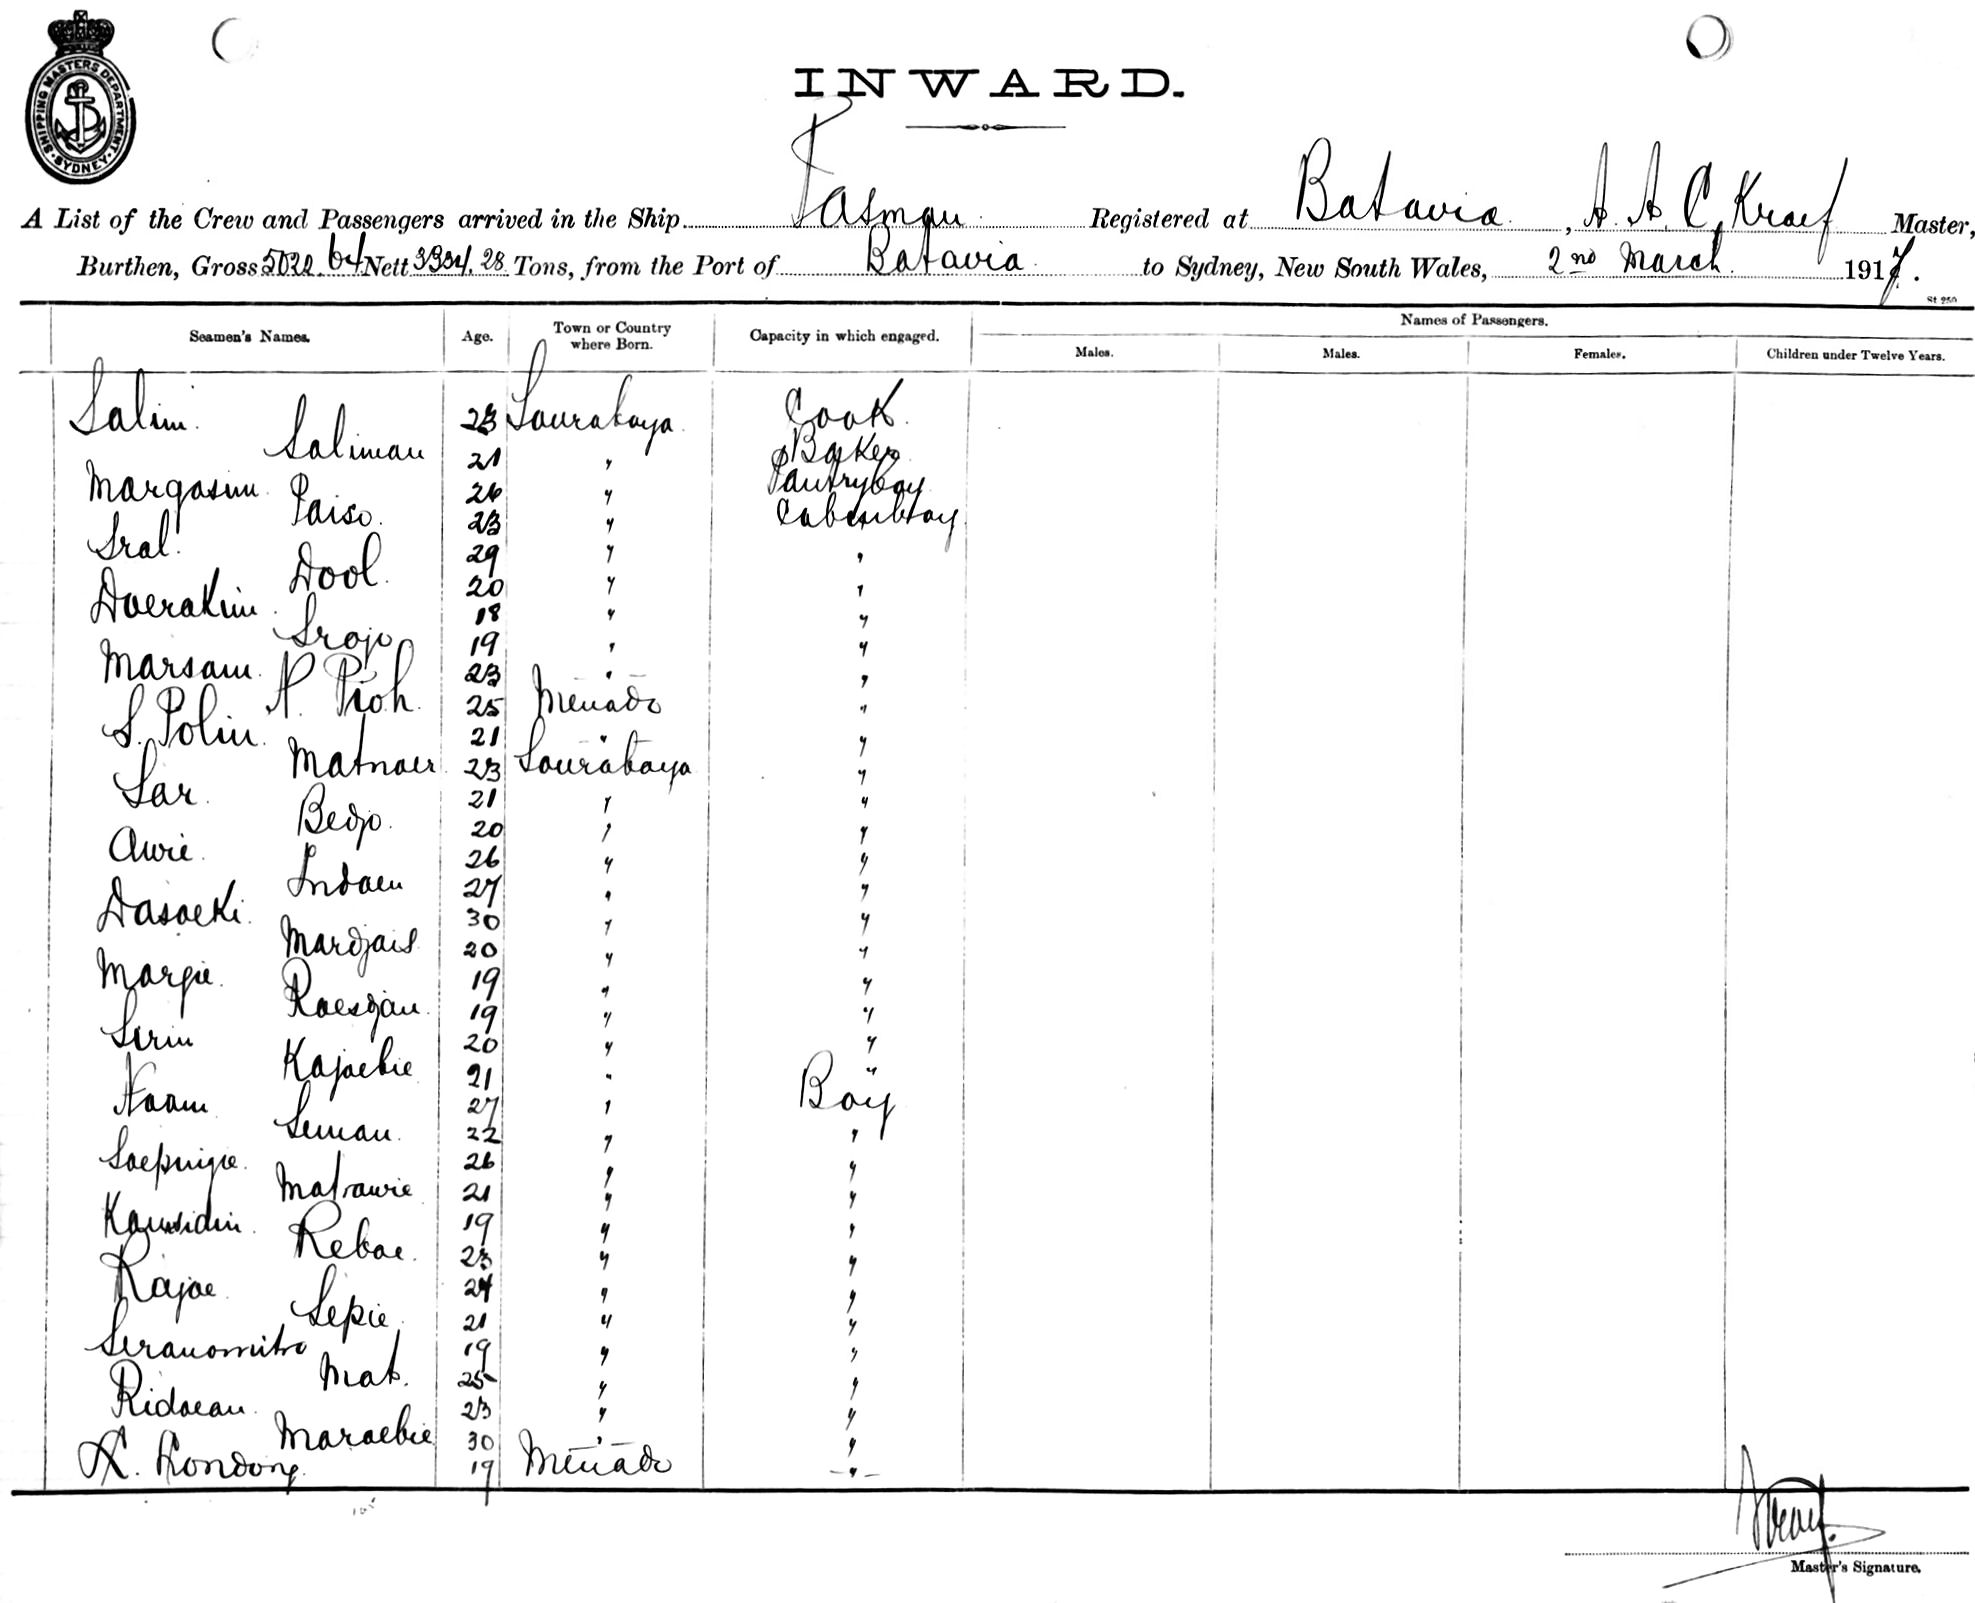 SHIPPING MASTERS DEPARTMENT. SYDNEY.
INWARD.
A List of the Crew and Passengers arrived in the Ship Tasman Registered at Batavia, A. A. C. Kraef Master,
Burthen, Gross 5022.64 Nett 3304.28 Tons, from the Port of Batavia to Sydney, New South Wales, 2nd March 1917.
St 250
Seamen's Names. Age. Town or Country where Born. Capacity in which engaged. Names of Passengers.
Males. Males. Females. Children under Twelve Years.
Salim. 23 Sourabaya Cook.
Saliman 21 " Baker
Margasim 26 " Pantryboy
Paiso. 23 " Cabinboy
Sral. 29 " "
Dool. 20 " "
Doerakim 18 " "
Srojo 19 " "
Marsam 23 " "
N. Pioh. 25 Menado "
S. Polin. 21 " "
Matnaer 23 Sourabaya "
Sar. 21 " "
Bedjo. 20 " "
Awie. 26 " "
Indaen 27 " "
Dasoeki. 30 " "
Mardjais 20 " "
Margie. 19 " "
Roesdjan. 19 " "
Sirin 20 " "
Kajoebie 21 " "
Naam 27 " Boy
Seman. 22 " "
26 " "
Matrawie 21 " "
19 " "
Reboe. 23 " "
Rajoe 24 " "
Sepie. 21 " "
Seranomitro 19 " "
Mat. 25 " "
Ridoean. 23 " "
Maroebie 30 " "
K. Kondong. 19 Menado "
Master's Signature.